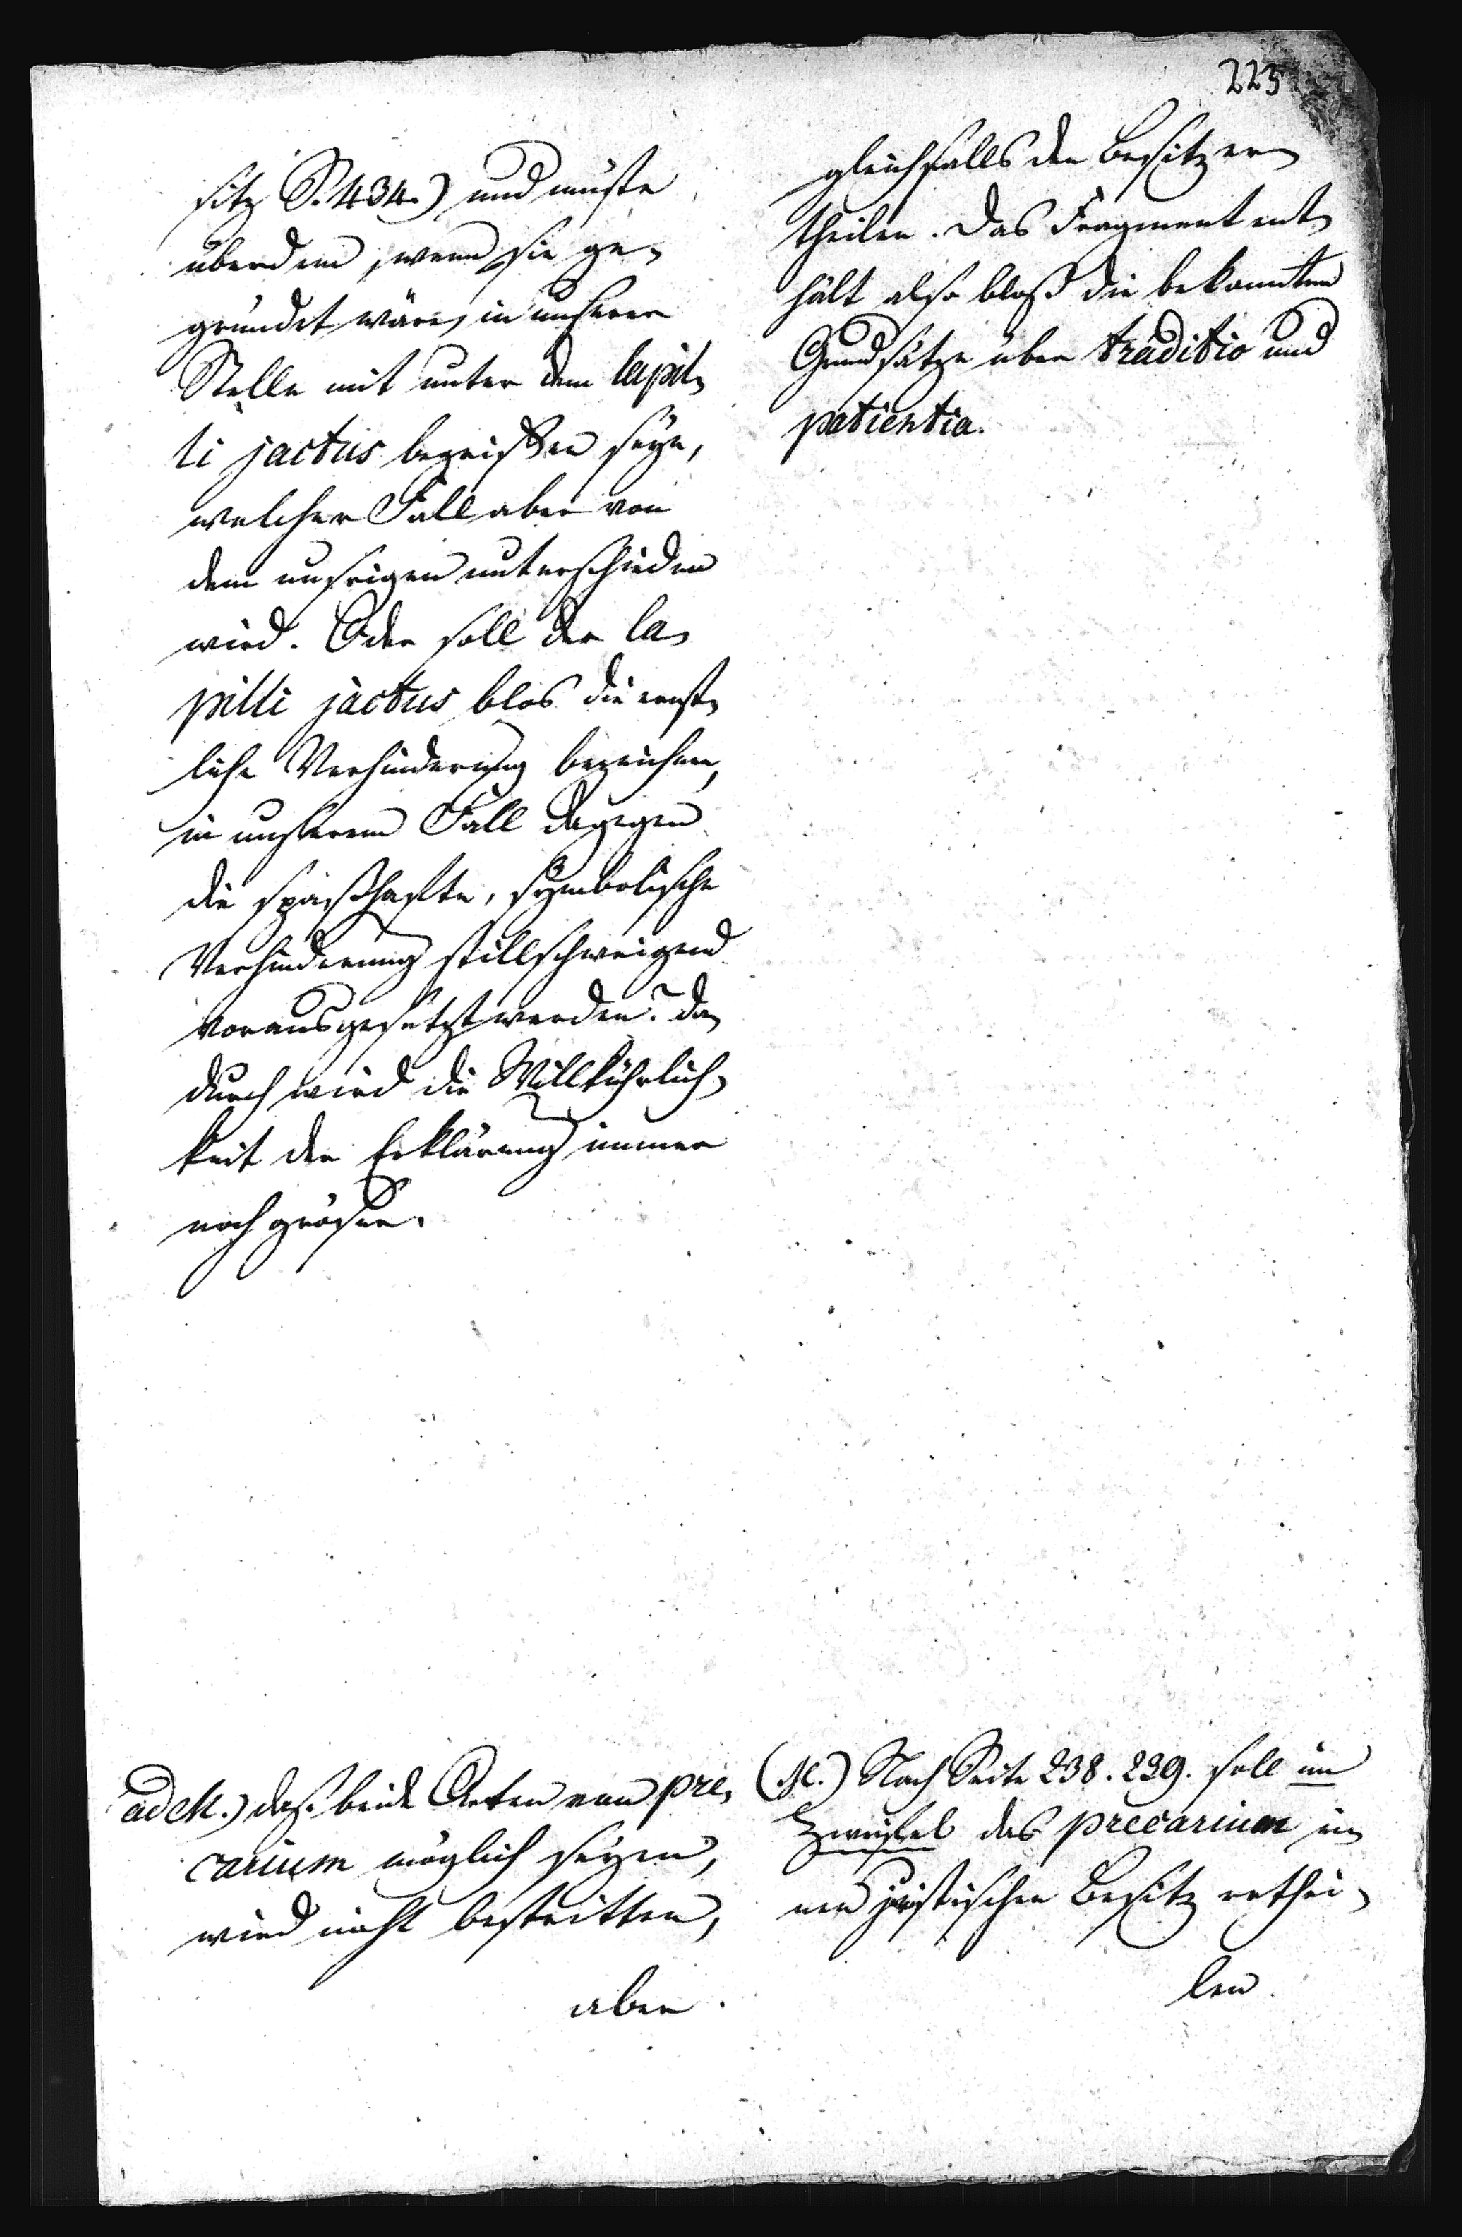 223
sitz S. 434.) und müste
überdem, wenn sie ge-
gründet wäre, in unserer
Stelle mit unter dem lapil-
li jactus begriffen seyn,
welcher Fall aber von
dem unsrigen unterschieden
wird. Oder soll der la-
pilli jactus blos die ernst-
liche Verhinderung bezeichnen,
in unserem Fall dagegen
die spaßhafte, symbolische
Verhinderung stillschweigend
vorausgesetzt werden? da-
durch wird die Willkührlich-
keit der Erklärung immer
noch größer.
gleichfalls den Besitz er-
theilen. Das Fragment ent-
hält also bloß die bekannten
Grundsätze über traditio und
patientia.
ad M.) daß beide Arten von pre-
carium möglich seyen,
wird nicht bestritten,
aber
(M.) Nach Seite 238. 239. soll im
Zweifel das precarium ei-
nen juristischen Besitz erthei-
len